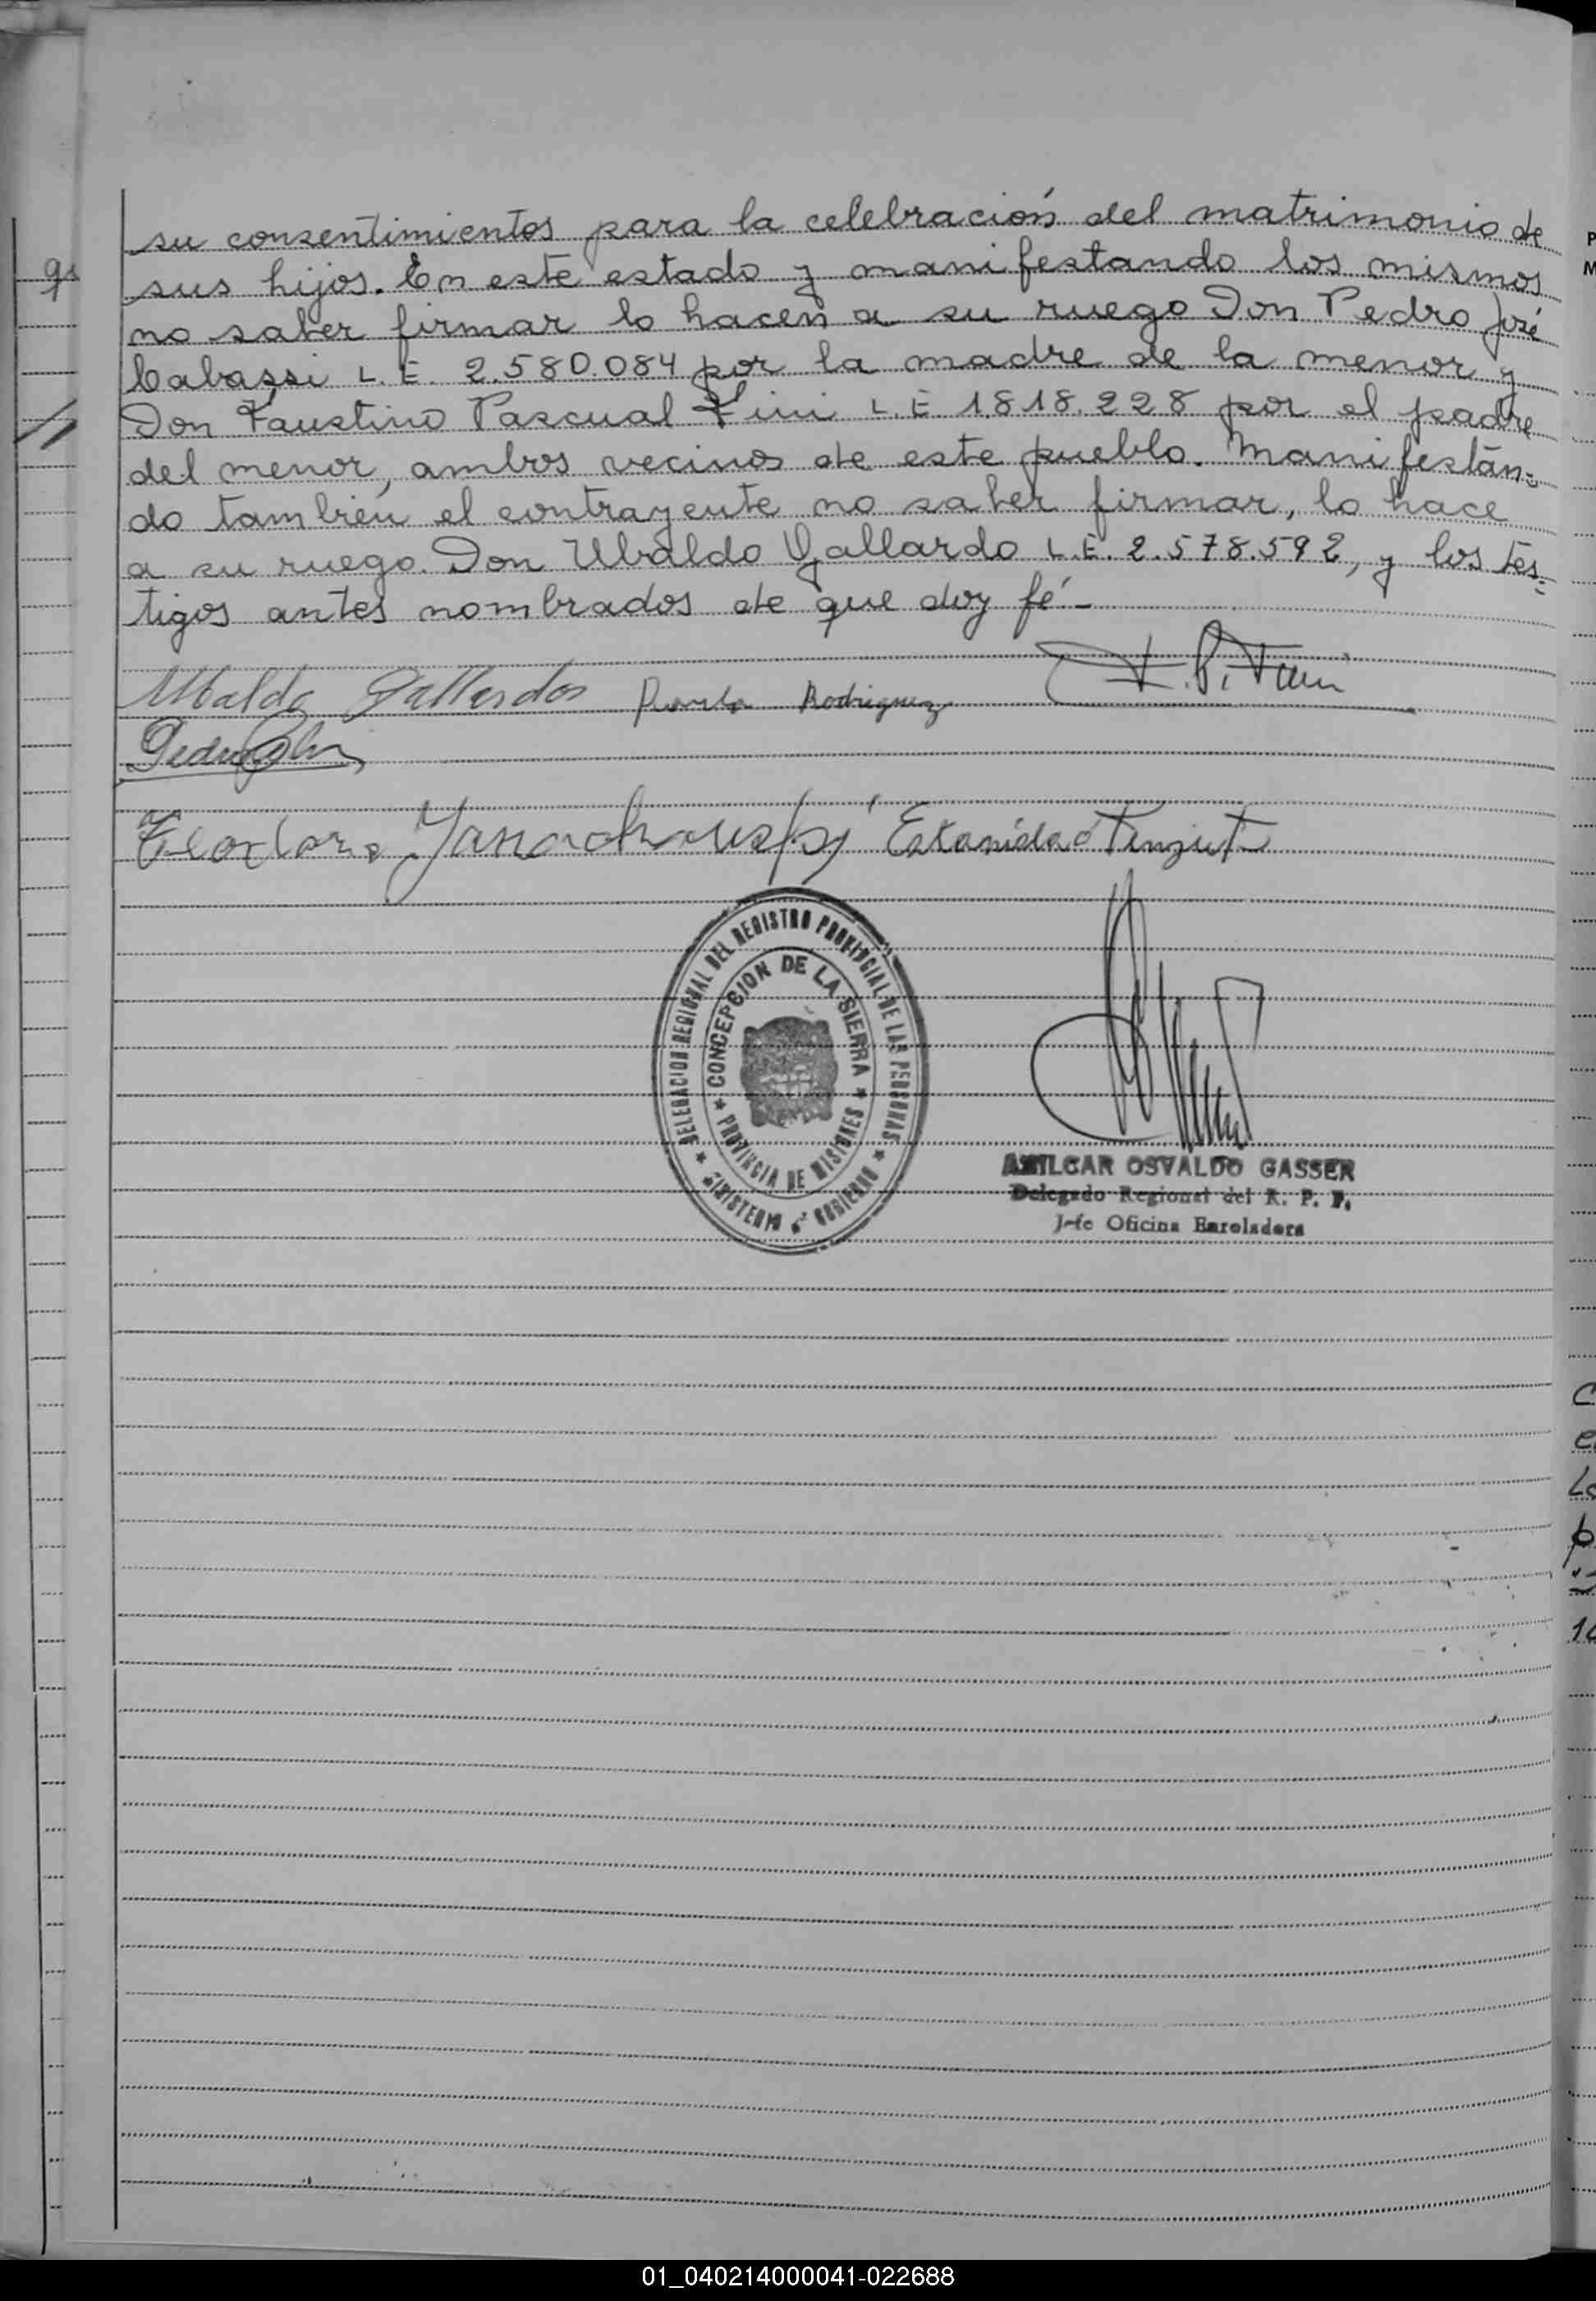 su consentimientos para la celebración del matrimonio de
sus hijos. En este estado y manifestando los mismos
no saber firmar lo hacen a su ruego Don Pedro José
Cabassi L.E. 2.580.084 por la madre de la menor y
Don Faustino Pascual Fini L.E 1.818.228 por el padre
del menor, ambos vecinos de este pueblo. Manifestán-
do también el contrayente no saber firmar, lo hace
a su ruego. Don Ubaldo Gallardo L.E. 2.578.592, y los tes-
tigos antes nombrados de que doy fé.-
Ubaldo Gallardo Rodriguez F. P. Fini
DELEGACION REGIONAL DEL REGISTRO PROVINCIAL DE LAS PERSONAS
MINISTERIO DE GOBIERNO
CONCEPCION DE LA SIERRA
PROVINCIA DE MISIONES
AMILCAR OSVALDO GASSER
Delegado Regional del R. P. P.
Jefe Oficina Enroladora
01_040214000041-022688